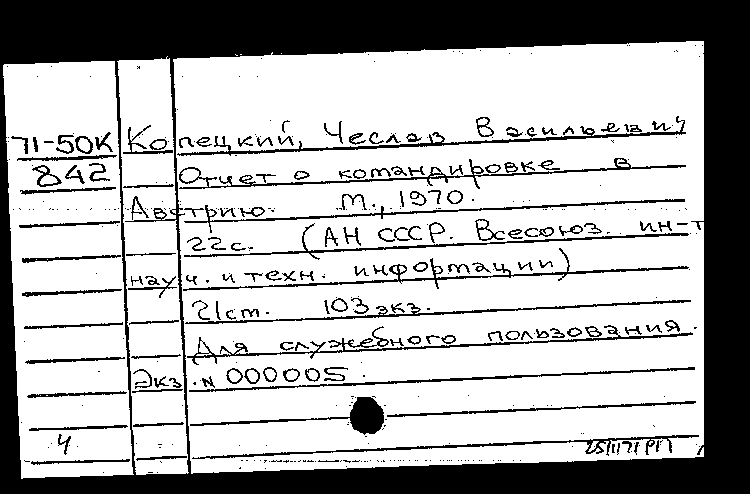 71-50К Копецкий, Чеслав Васильевич
842 Отчет о командировке в
Австрию. М., 1970.
22с. (АН СССР. Всесоюз. ин-т
науч. и техн. информации)
21см. 103 экз.
Для служебного пользования.
Экз. № 000005.
4